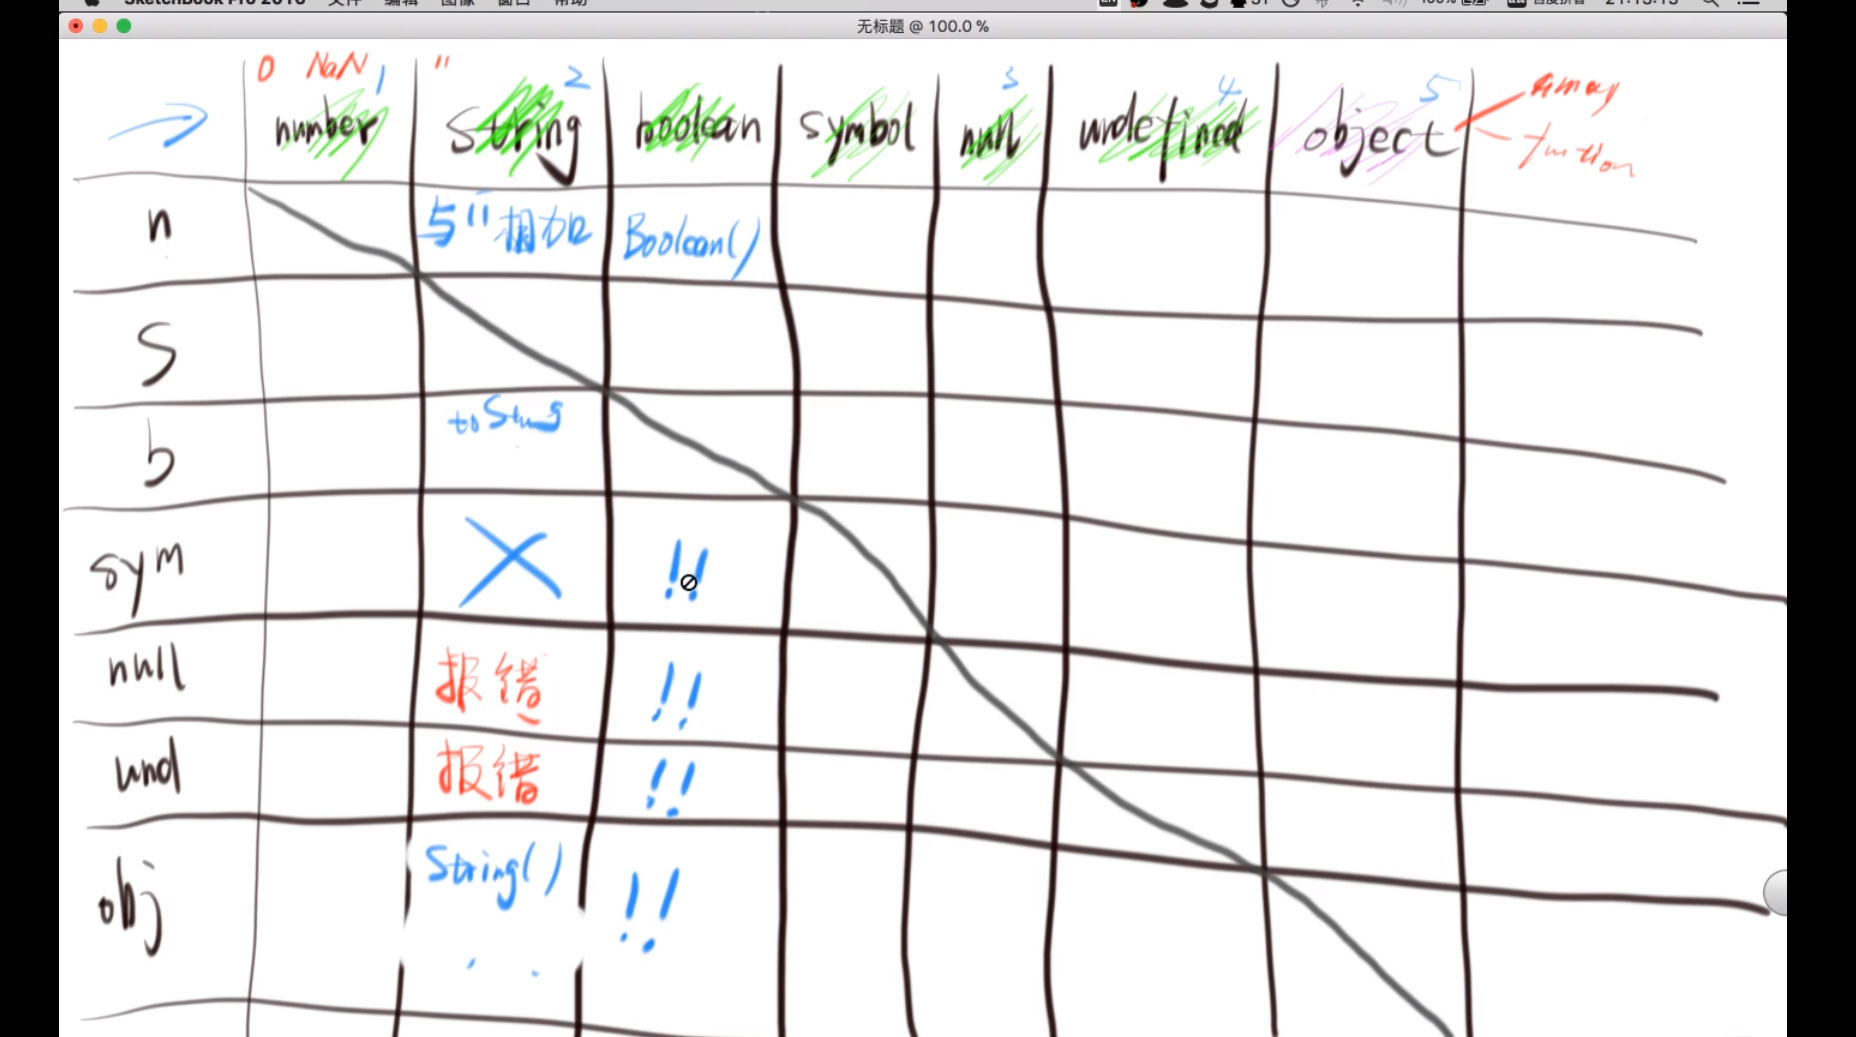 SketchBook Pro 2016 文件 编辑 图像 窗口 帮助
无标题 @ 100.0 %
0 NaN 1 '' 2 3 4 5 array
number string boolean symbol null undefined object function
n 与''相加 Boolean()
S
b toString
sym !!
null 报错 !!
und 报错 !!
obj String() !!